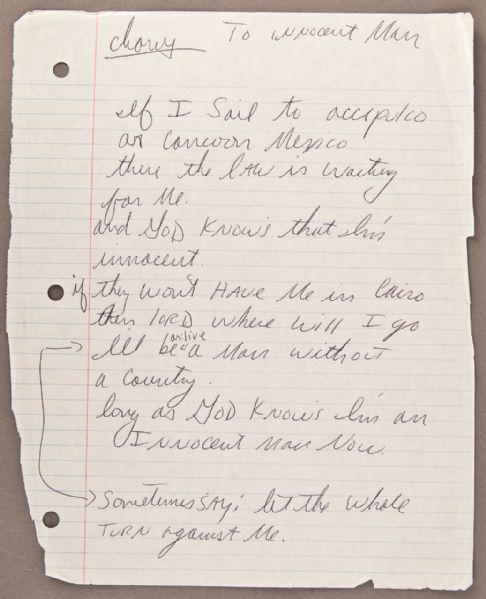 chorus To Innocent Man
If I Sail to accepulco
or Cancoon Mexico
there the LAW is waiting
for Me.
and GOD Knows that I'm
innocent.
if they won't HAVE Me in Cairo
then LORD where will I go
I'll be a Man without
or live
a Country.
long as GOD Knows I'm an
INNOCENT Man Now.
Sometimes SAY: let the whole
TURN against Me.